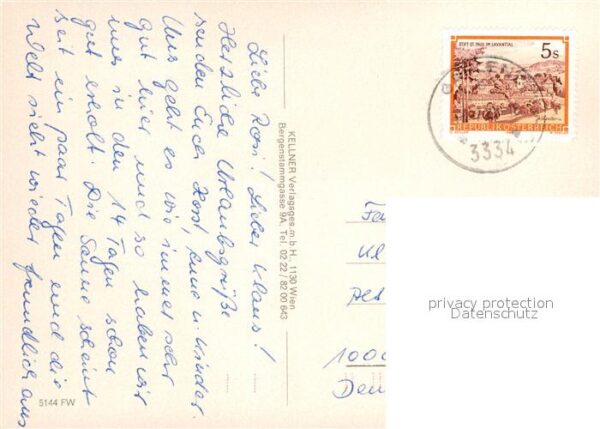 Liebe Rosi! Lieber Klaus!
Herzliche Urlaubsgrüße
senden Euch Horst, Erna u. Kinder.
Uns geht es wie immer sehr
gut hier und so haben wir
uns in den 14 Tagen schon
gut erholt. Die Sonne scheint
seit ein paar Tagen und die
Welt sieht wieder freundlich aus
KELLNER Verlagsges. m. b. H., 1130 Wien
Bergenstammgasse 9A, Tel. 02 22 / 82 00 643
5144 FW
STIFT ST. PAUL IM LAVANTTAL
5s
REPUBLIK ÖSTERREICH
3334
Fa
Kl
1000
Den
privacy protection
Datenschutz